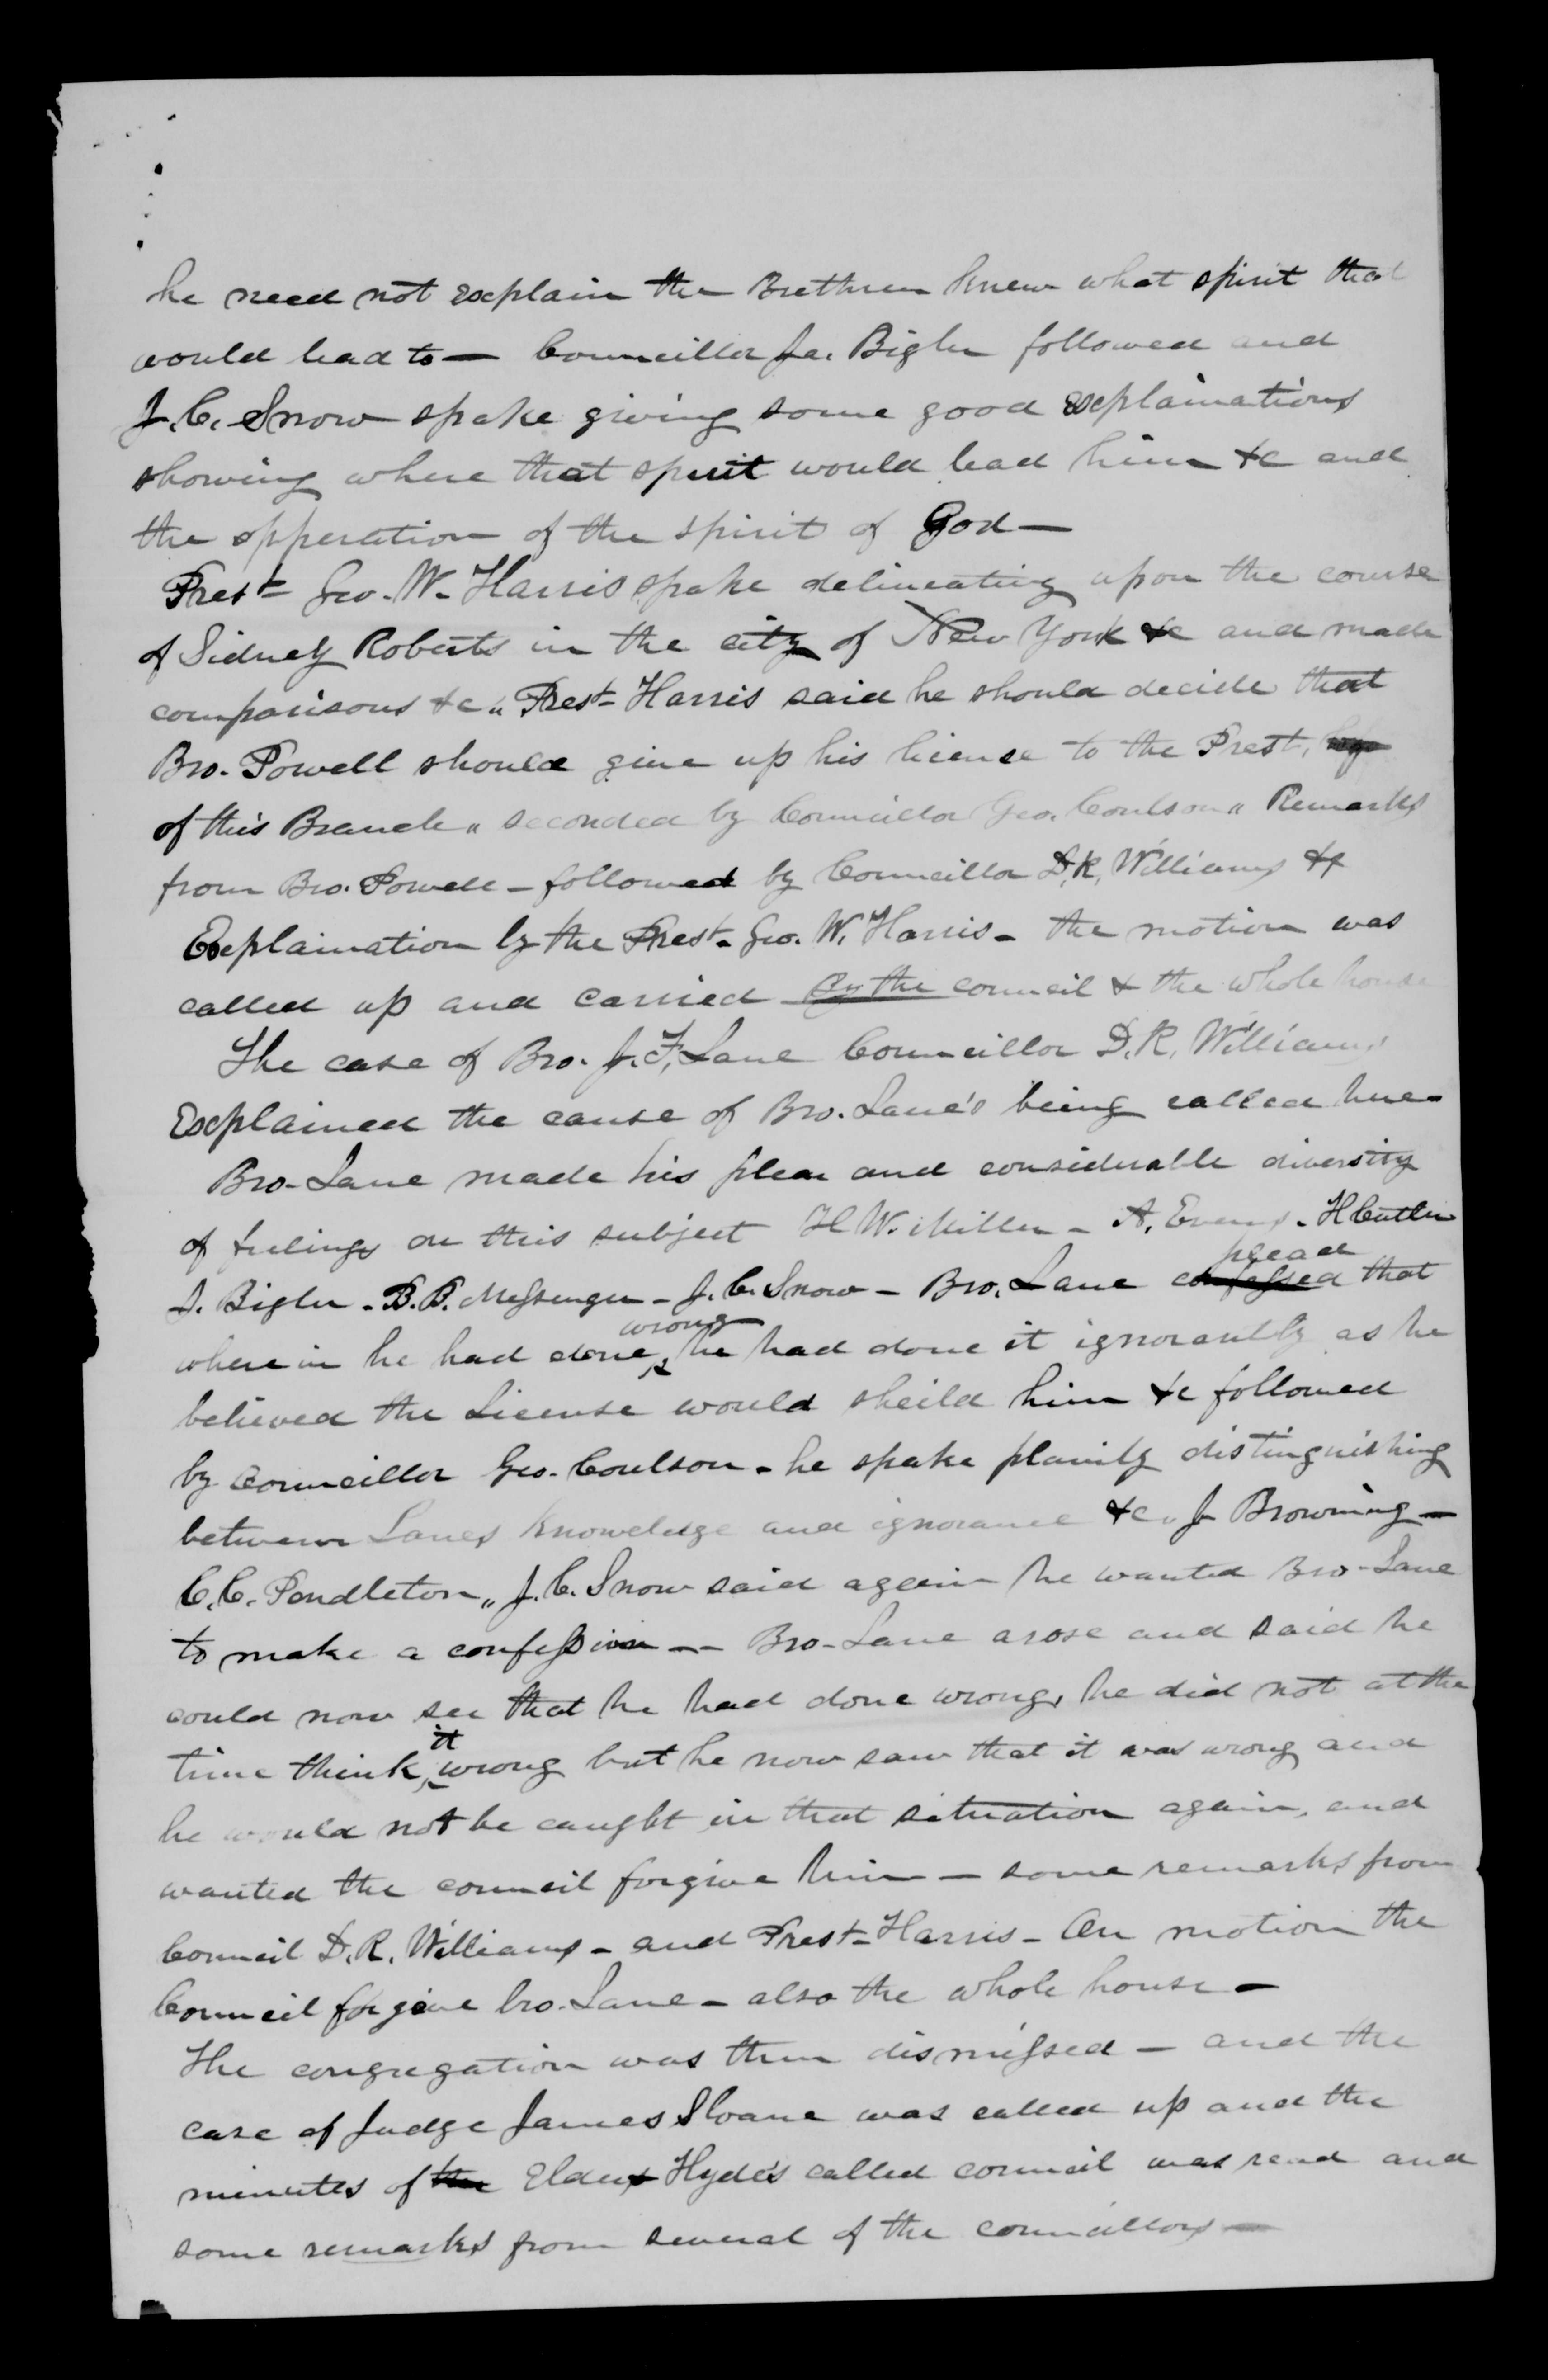 he need not explain the Brethren knew what spirit that
would lead to — Councillor Ja. Bigler followed and
J. C. Snow spake giving some good explainations
showing where that spirit would lead him &c and
the opperation of the spirit of God —
Prest- Geo. W. Harris spake delineating upon the course
of Sidney Roberts in the city of New York &c and made
comparisons &c „ Prest- Harris said he should decide that
Bro. Powell should give up his license to the Prest.
of this Branch „ seconded by Councillor Geo. Coulson „ Remarks
from Bro. Powell - followed by Councillor D. R. Williams &c
Explaination by the Prest- Geo. W. Harris - the motion was
called up and carried by the council & the whole house
The case of Bro. J. F. Lane Councillor D. R. Williams
Explained the cause of Bro. Lane's being called here -
Bro - Lane made his plea and considerable diversity
of feelings on this subject H W. Miller - A. Evens - H Cutler
J. Bigler - B. B. Messenger - J. C. Snow - Bro. Lane confessed plead that
where in he had done wrong, he had done it ignorantly as he
believed the License would sheild him &c followed
by Councillor Geo. Coulson - he spake plainly distinguishing
between Lanes knoweledge and ignorance &c. J Browning —
C. C. Pendleton „ J. C. Snow said again he wanted Bro - Lane
to make a confession -- Bro - Lane arose and said he
could now see that he had done wrong, he did not at the
time think it wrong but he now saw that it was wrong and
he would not be caught in that situation again, and
wanted the council forgive him — some remarks from
Council D. R. Williams - and Prest- Harris - On motion the
Council forgive bro. Lane - also the whole house —
The congregation was then dismissed — and the
case of Judge James Sloane was called up and the
minutes of the Elder Hyde's called council was read and
some remarks from several of the councillors —